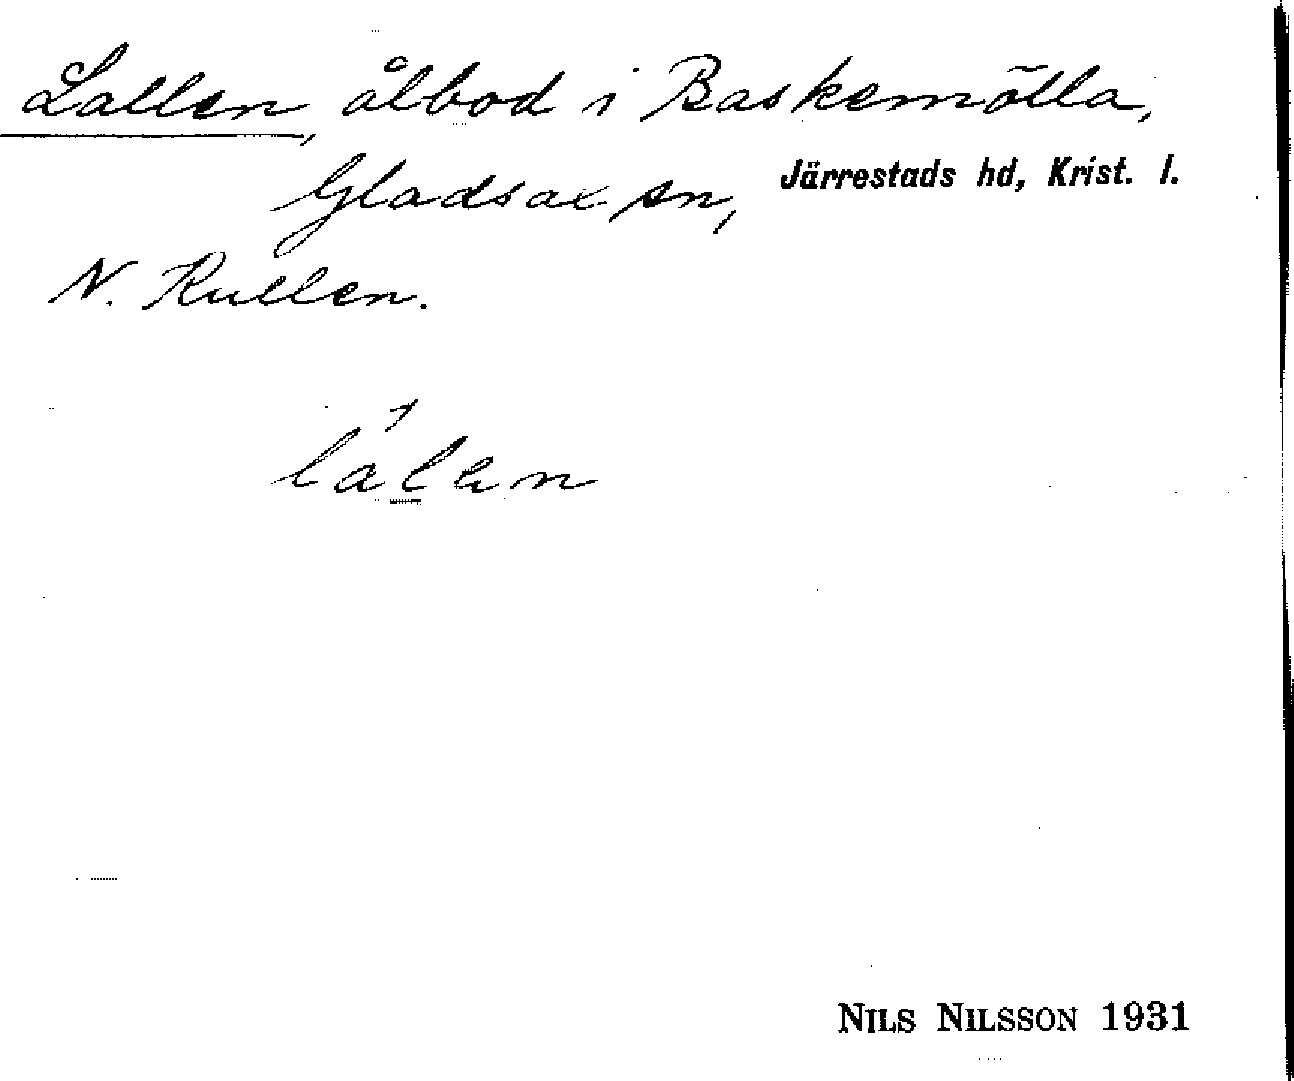 Lallen, ålbod i Baskemölla,
Gladsax sn, Järrestads hd, Krist. l.
N. Rullen.
NILS NILSSON 1931